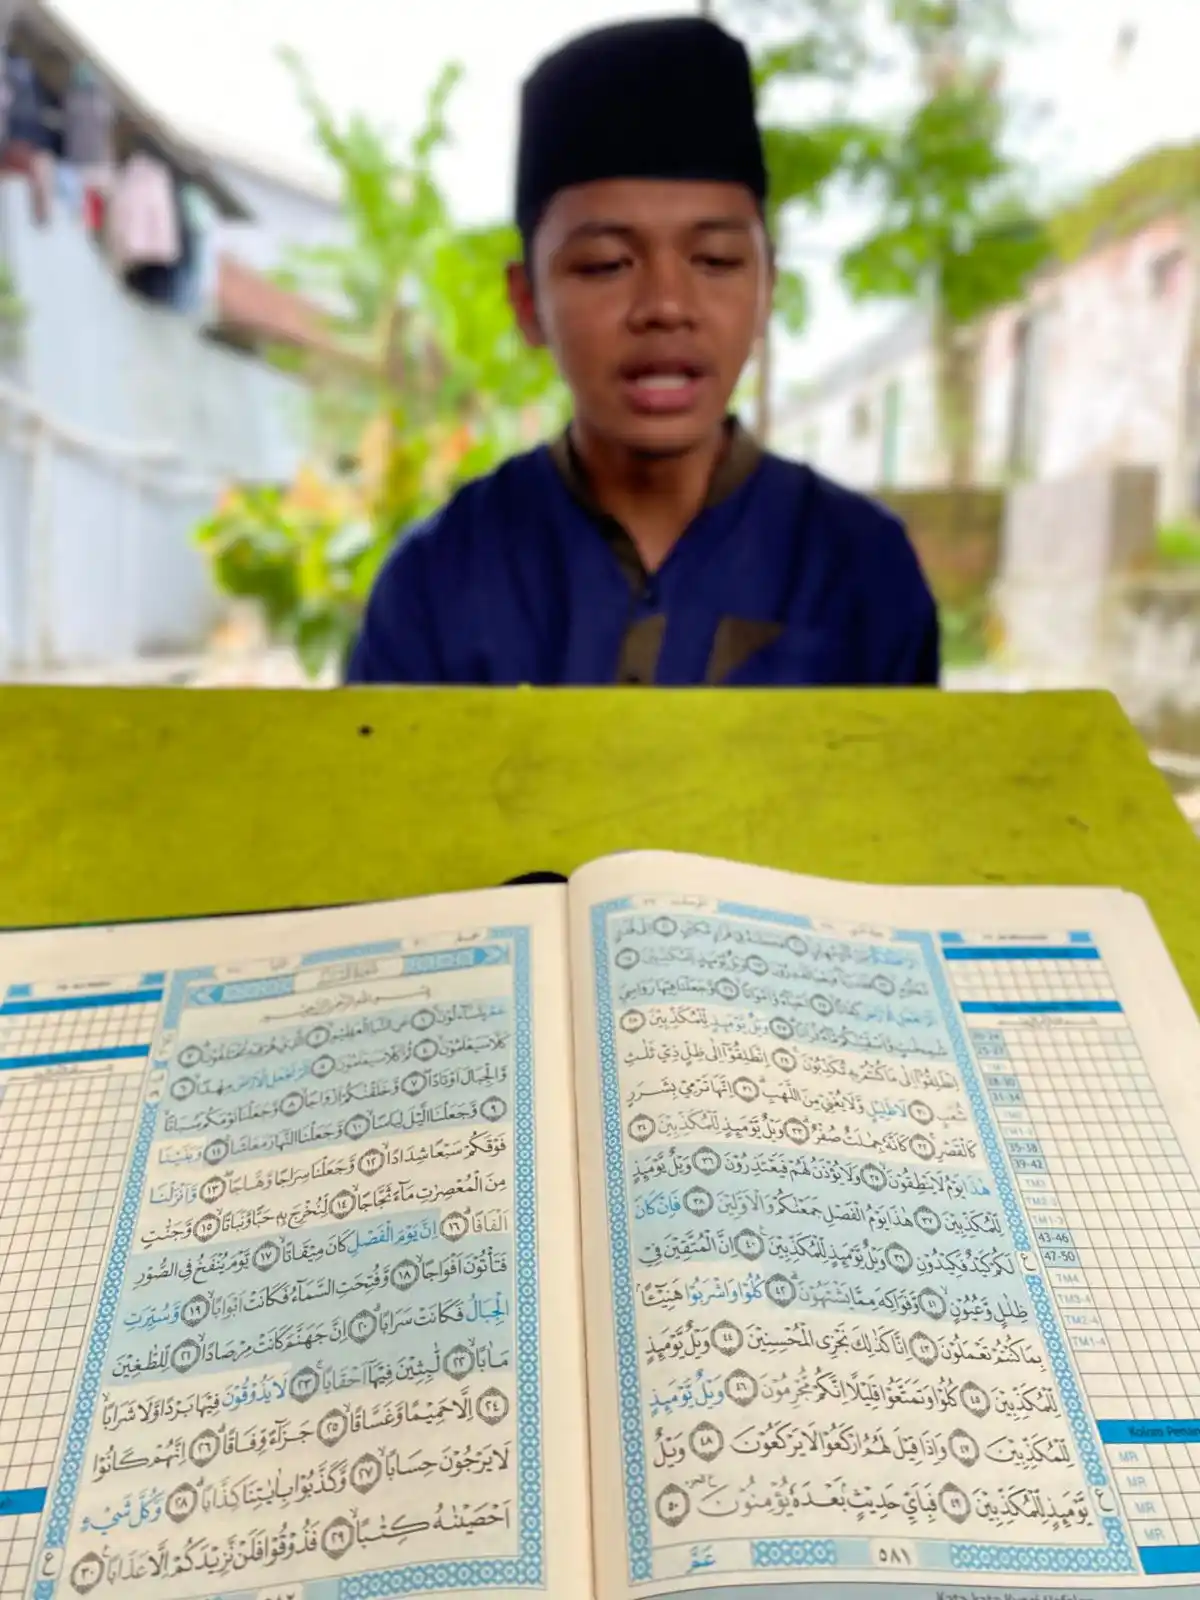 اَلَمْ نَخْلُقْكُّمْ مِّنْ مَّاۤءٍ مَّهِيْنٍ ۙ ٢٠ فَجَعَلْنٰهُ فِيْ قَرَارٍ مَّكِيْنٍ ۙ ٢١ اِلٰى قَدَرٍ
مَّعْلُوْمٍ ۙ ٢٢ فَقَدَرْنَا فَنِعْمَ الْقٰدِرُوْنَ ٢٣ وَيْلٌ يَّوْمَىِٕذٍ لِّلْمُكَذِّبِيْنَ ٢٤
اَلَمْ نَجْعَلِ الْاَرْضَ كِفَاتًا ۙ ٢٥ اَحْيَاۤءً وَّاَمْوَاتًا ۙ ٢٦ وَّجَعَلْنَا فِيْهَا رَوَاسِيَ
شٰمِخٰتٍ وَّاَسْقَيْنٰكُمْ مَّاۤءً فُرَاتًا ۗ ٢٧ وَيْلٌ يَّوْمَىِٕذٍ لِّلْمُكَذِّبِيْنَ ٢٨
اِنْطَلِقُوْٓا اِلٰى مَا كُنْتُمْ بِهٖ تُكَذِّبُوْنَ ۚ ٢٩ اِنْطَلِقُوْٓا اِلٰى ظِلٍّ ذِيْ ثَلٰثِ
شُعَبٍ ۙ ٣٠ لَا ظَلِيْلٍ وَّلَا يُغْنِيْ مِنَ اللَّهَبِ ۗ ٣١ اِنَّهَا تَرْمِيْ بِشَرَرٍ
كَالْقَصْرِ ۚ ٣٢ كَاَنَّهٗ جِمٰلَتٌ صُفْرٌ ۗ ٣٣ وَيْلٌ يَّوْمَىِٕذٍ لِّلْمُكَذِّبِيْنَ ٣٤
هٰذَا يَوْمُ لَا يَنْطِقُوْنَ ۙ ٣٥ وَلَا يُؤْذَنُ لَهُمْ فَيَعْتَذِرُوْنَ ٣٦ وَيْلٌ يَّوْمَىِٕذٍ
لِّلْمُكَذِّبِيْنَ ٣٧ هٰذَا يَوْمُ الْفَصْلِ جَمَعْنٰكُمْ وَالْاَوَّلِيْنَ ٣٨ فَاِنْ كَانَ
لَكُمْ كَيْدٌ فَكِيْدُوْنِ ٣٩ وَيْلٌ يَّوْمَىِٕذٍ لِّلْمُكَذِّبِيْنَ ࣖ ٤٠ اِنَّ الْمُتَّقِيْنَ فِيْ
ظِلٰلٍ وَّعُيُوْنٍ ۙ ٤١ وَّفَوَاكِهَ مِمَّا يَشْتَهُوْنَ ۗ ٤٢ كُلُوْا وَاشْرَبُوْا هَنِيْۤـًٔا ۢ
بِمَا كُنْتُمْ تَعْمَلُوْنَ ٤٣ اِنَّا كَذٰلِكَ نَجْزِى الْمُحْسِنِيْنَ ٤٤ وَيْلٌ يَّوْمَىِٕذٍ
لِّلْمُكَذِّبِيْنَ ٤٥ كُلُوْا وَتَمَتَّعُوْا قَلِيْلًا اِنَّكُمْ مُّجْرِمُوْنَ ٤٦ وَيْلٌ يَّوْمَىِٕذٍ
لِّلْمُكَذِّبِيْنَ ٤٧ وَاِذَا قِيْلَ لَهُمُ ارْكَعُوْا لَا يَرْكَعُوْنَ ٤٨ وَيْلٌ
يَّوْمَىِٕذٍ لِّلْمُكَذِّبِيْنَ ٤٩ فَبِاَيِّ حَدِيْثٍ ۢ بَعْدَهٗ يُؤْمِنُوْنَ ࣖ ٥٠
عَمَّ
٥٨١
28-30
31-34
35-38
39-42
43-46
47-50
TM4
TM3-4
TM2-4
TM1-4
MR
MR
MR
MR
بِسْمِ اللّٰهِ الرَّحْمٰنِ الرَّحِيْمِ
عَمَّ يَتَسَاۤءَلُوْنَ ۚ ١ عَنِ النَّبَاِ الْعَظِيْمِ ۙ ٢ الَّذِيْ هُمْ فِيْهِ مُخْتَلِفُوْنَ ۗ ٣
كَلَّا سَيَعْلَمُوْنَ ۙ ٤ ثُمَّ كَلَّا سَيَعْلَمُوْنَ ٥ اَلَمْ نَجْعَلِ الْاَرْضَ مِهٰدًا ۙ ٦
وَّالْجِبَالَ اَوْتَادًا ۖ ٧ وَّخَلَقْنٰكُمْ اَزْوَاجًا ۙ ٨ وَّجَعَلْنَا نَوْمَكُمْ سُبَاتًا ۙ
٩ وَّجَعَلْنَا الَّيْلَ لِبَاسًا ۙ ١٠ وَّجَعَلْنَا النَّهَارَ مَعَاشًا ۖ ١١ وَبَنَيْنَا
فَوْقَكُمْ سَبْعًا شِدَادًا ۙ ١٢ وَّجَعَلْنَا سِرَاجًا وَّهَّاجًا ۖ ١٣ وَّاَنْزَلْنَا
مِنَ الْمُعْصِرٰتِ مَاۤءً ثَجَّاجًا ۙ ١٤ لِّنُخْرِجَ بِهٖ حَبًّا وَّنَبَاتًا ۙ ١٥ وَّجَنّٰتٍ
اَلْفَافًا ۗ ١٦ اِنَّ يَوْمَ الْفَصْلِ كَانَ مِيْقَاتًا ۙ ١٧ يَّوْمَ يُنْفَخُ فِى الصُّوْرِ
فَتَأْتُوْنَ اَفْوَاجًا ۙ ١٨ وَّفُتِحَتِ السَّمَاۤءُ فَكَانَتْ اَبْوَابًا ۙ ١٩ وَّسُيِّرَتِ
الْجِبَالُ فَكَانَتْ سَرَابًا ۗ ٢٠ اِنَّ جَهَنَّمَ كَانَتْ مِرْصَادًا ۙ ٢١ لِّلطّٰغِيْنَ
مَاٰبًا ۙ ٢٢ لّٰبِثِيْنَ فِيْهَآ اَحْقَابًا ۚ ٢٣ لَا يَذُوْقُوْنَ فِيْهَا بَرْدًا وَّلَا شَرَابًا ۙ
٢٤ اِلَّا حَمِيْمًا وَّغَسَّاقًا ۙ ٢٥ جَزَاۤءً وِّفَاقًا ۗ ٢٦ اِنَّهُمْ كَانُوْا
لَا يَرْجُوْنَ حِسَابًا ۙ ٢٧ وَّكَذَّبُوْا بِاٰيٰتِنَا كِذَّابًا ۗ ٢٨ وَكُلَّ شَيْءٍ
اَحْصَيْنٰهُ كِتٰبًا ۙ ٢٩ فَذُوْقُوْا فَلَنْ نَّزِيْدَكُمْ اِلَّا عَذَابًا ࣖ ٣٠